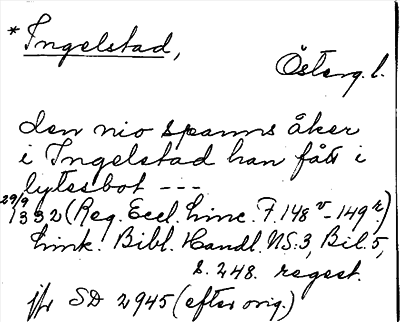 * Ingelstad,
Österg. l.
den nio spanns åker
i Ingelstad han fått i
lytesbot ---
29/9 1332 (Reg. Eccl. Linc. F. 148 v - 149 r.)
Link. Bibl. Handl. NS. 3, Bil. 5,
s. 248. regest.
jfr SD 2945 (efter orig.)